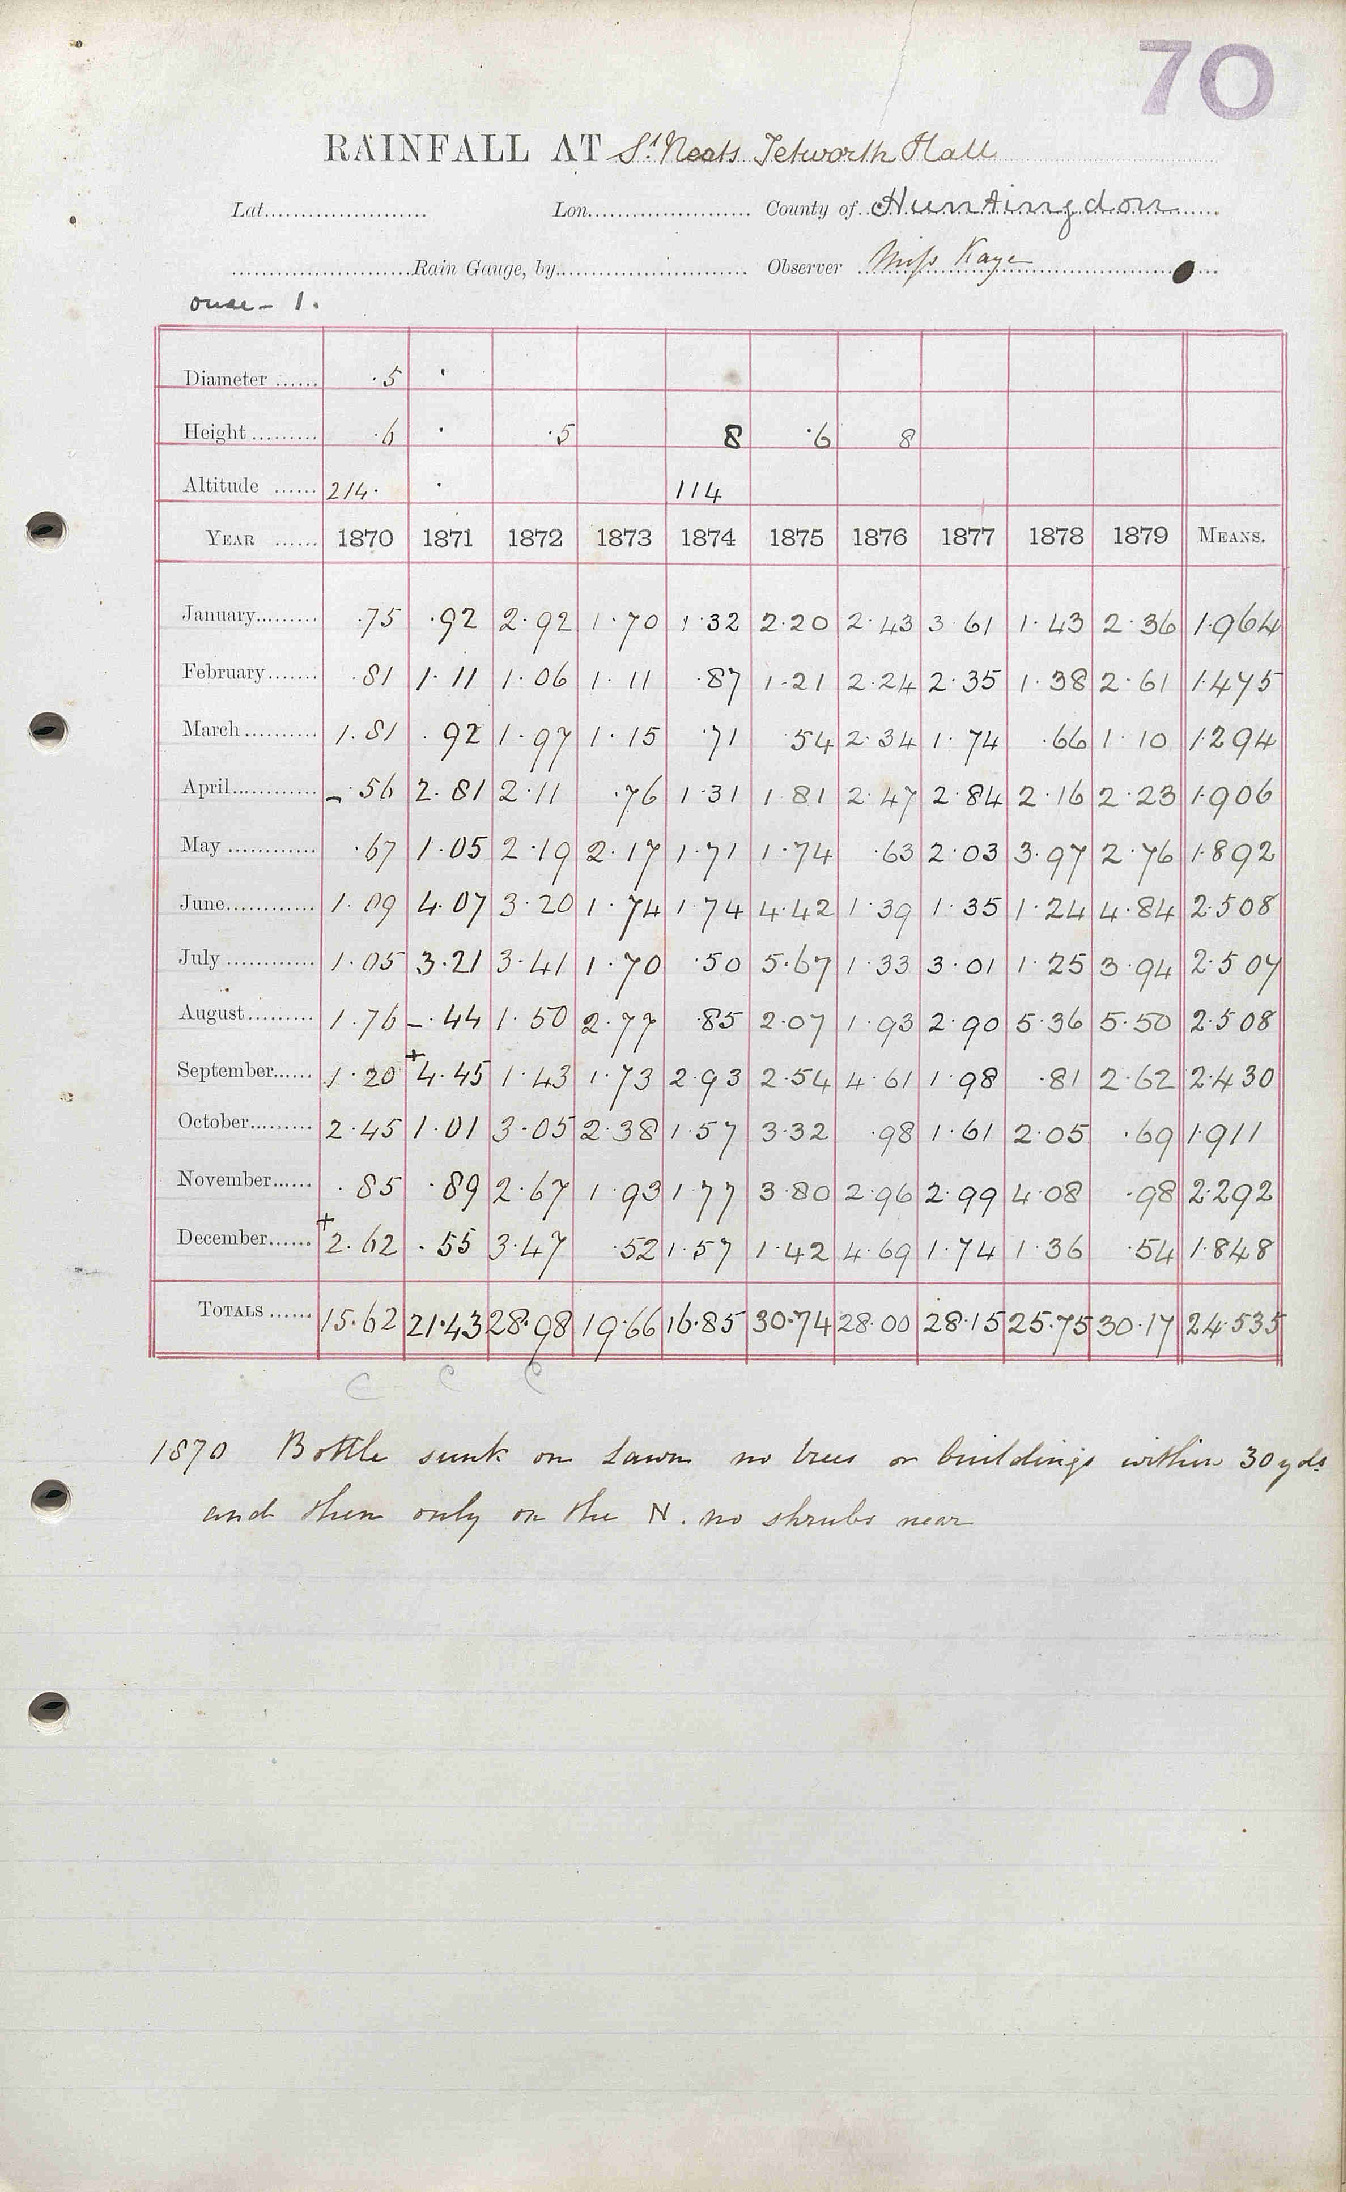 70
RAINFALL AT St Neots Tetworth Hall
Lat. Lon. County of Huntingdon
Rain Gauge, by Observer Miss Kaye
Ouse - 1.
Diameter ...... ·5 ·
Height ......... ·6 · ·5 8 ·6 8
Altitude ...... 214· · 114
YEAR ...... 1870 1871 1872 1873 1874 1875 1876 1877 1878 1879 MEANS.
January......... ·75 ·92 2·92 1·70 1·32 2·20 2·43 3·61 1·43 2·36 1·964
February....... ·81 1·11 1·06 1·11 ·87 1·21 2·24 2·35 1·38 2·61 1·475
March .......... 1·81 ·92 1·97 1·15 ·71 ·54 2·34 1·74 ·66 1·10 1·294
April............ – ·56 2·81 2·11 ·76 1·31 1·81 2·47 2·84 2·16 2·23 1·906
May ............ ·67 1·05 2·19 2·17 1·71 1·74 ·63 2·03 3·97 2·76 1·892
June............ 1·09 4·07 3·20 1·74 1·74 4·42 1·39 1·35 1·24 4·84 2·508
July ............ 1·05 3·21 3·41 1·70 ·50 5·67 1·33 3·01 1·25 3·94 2·507
August......... 1·76 – ·44 1·50 2·77 ·85 2·07 1·93 2·90 5·36 5·50 2·508
September...... 1·20 +4·45 1·43 1·73 2·93 2·54 4·61 1·98 ·81 2·62 2·430
October......... 2·45 1·01 3·05 2·38 1·57 3·32 ·98 1·61 2·05 ·69 1·911
November...... ·85 ·89 2·67 1·93 1·77 3·80 2·96 2·99 4·08 ·98 2·292
December...... +2·62 ·55 3·47 ·52 1·57 1·42 4·69 1·74 1·36 ·54 1·848
TOTALS ...... 15·62 21·43 28·98 19·66 16·85 30·74 28·00 28·15 25·75 30·17 24·535
C C C
1870 Bottle sunk on Lawn no trees or buildings within 30 yds
and then only on the N. no shrubs near